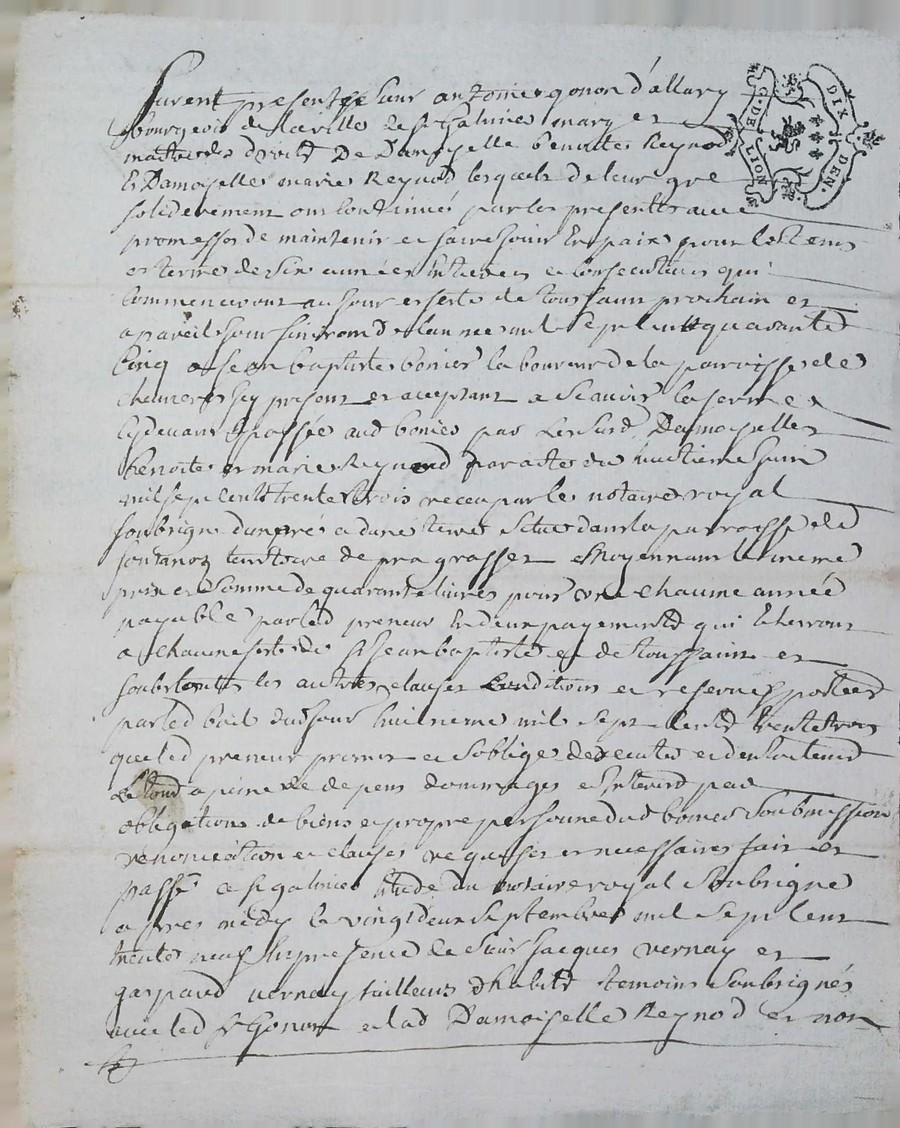 furent presents sieur antoine gonon d'allary
bourgeois de la ville de st galmier mary et
maitre des droits De Damoyselle benoitte Reynod
& Damoyselle marie Reynod lesquels de leur gre
soliderement ont continué par les presentes avec
promesses de maintenir et faire jouir en paix pour le tems
et terme de six années entieres et consecutives qui
commenceront au jour et feste de toussaint prochain et
a pareil jour finiront de lannee mil sept cent quarante
cinq a Jean baptiste bonier laboureur de la parroisse de
present et acceptant a scavoir la ferme
cydevant passée aud bonier par lesd Damoyselles
benoite et marie Reynod par acte du huitieme
mil sept cents trente trois receu par le notaire royal
soubsigné dun pré et dune terre situés dans la parroisse de
territoire de pragrasset Moyennant le meme
prix et somme de quarante livres pour une chaune année
payable par led preneur en deux payements qui écherront
a chaune feste de st Jean baptiste et de toussaint et
soubs toutes les autres clauses conditions et reserves portées
par led bail dud jour huitieme mil sept cents trente trois
que led preneur promet et soblige dexecuter et den
le tout a peine de depens dommages et interets par
obligations de biens et propre personne dud bonier soubmission
renonciation et clauses requises et necessaires fait et
passé a st galmier étude du notaire royal soubsigné
apres midy le vingt deux septembre mil sept cent
trente neuf en presence de sieur Jacques vernay et
gaspard vernay tailleurs dhabits temoins soubsignés
avec led sr Gonon et lad Damoiselle Reynod et non
C. DE LION
DIX DEN.